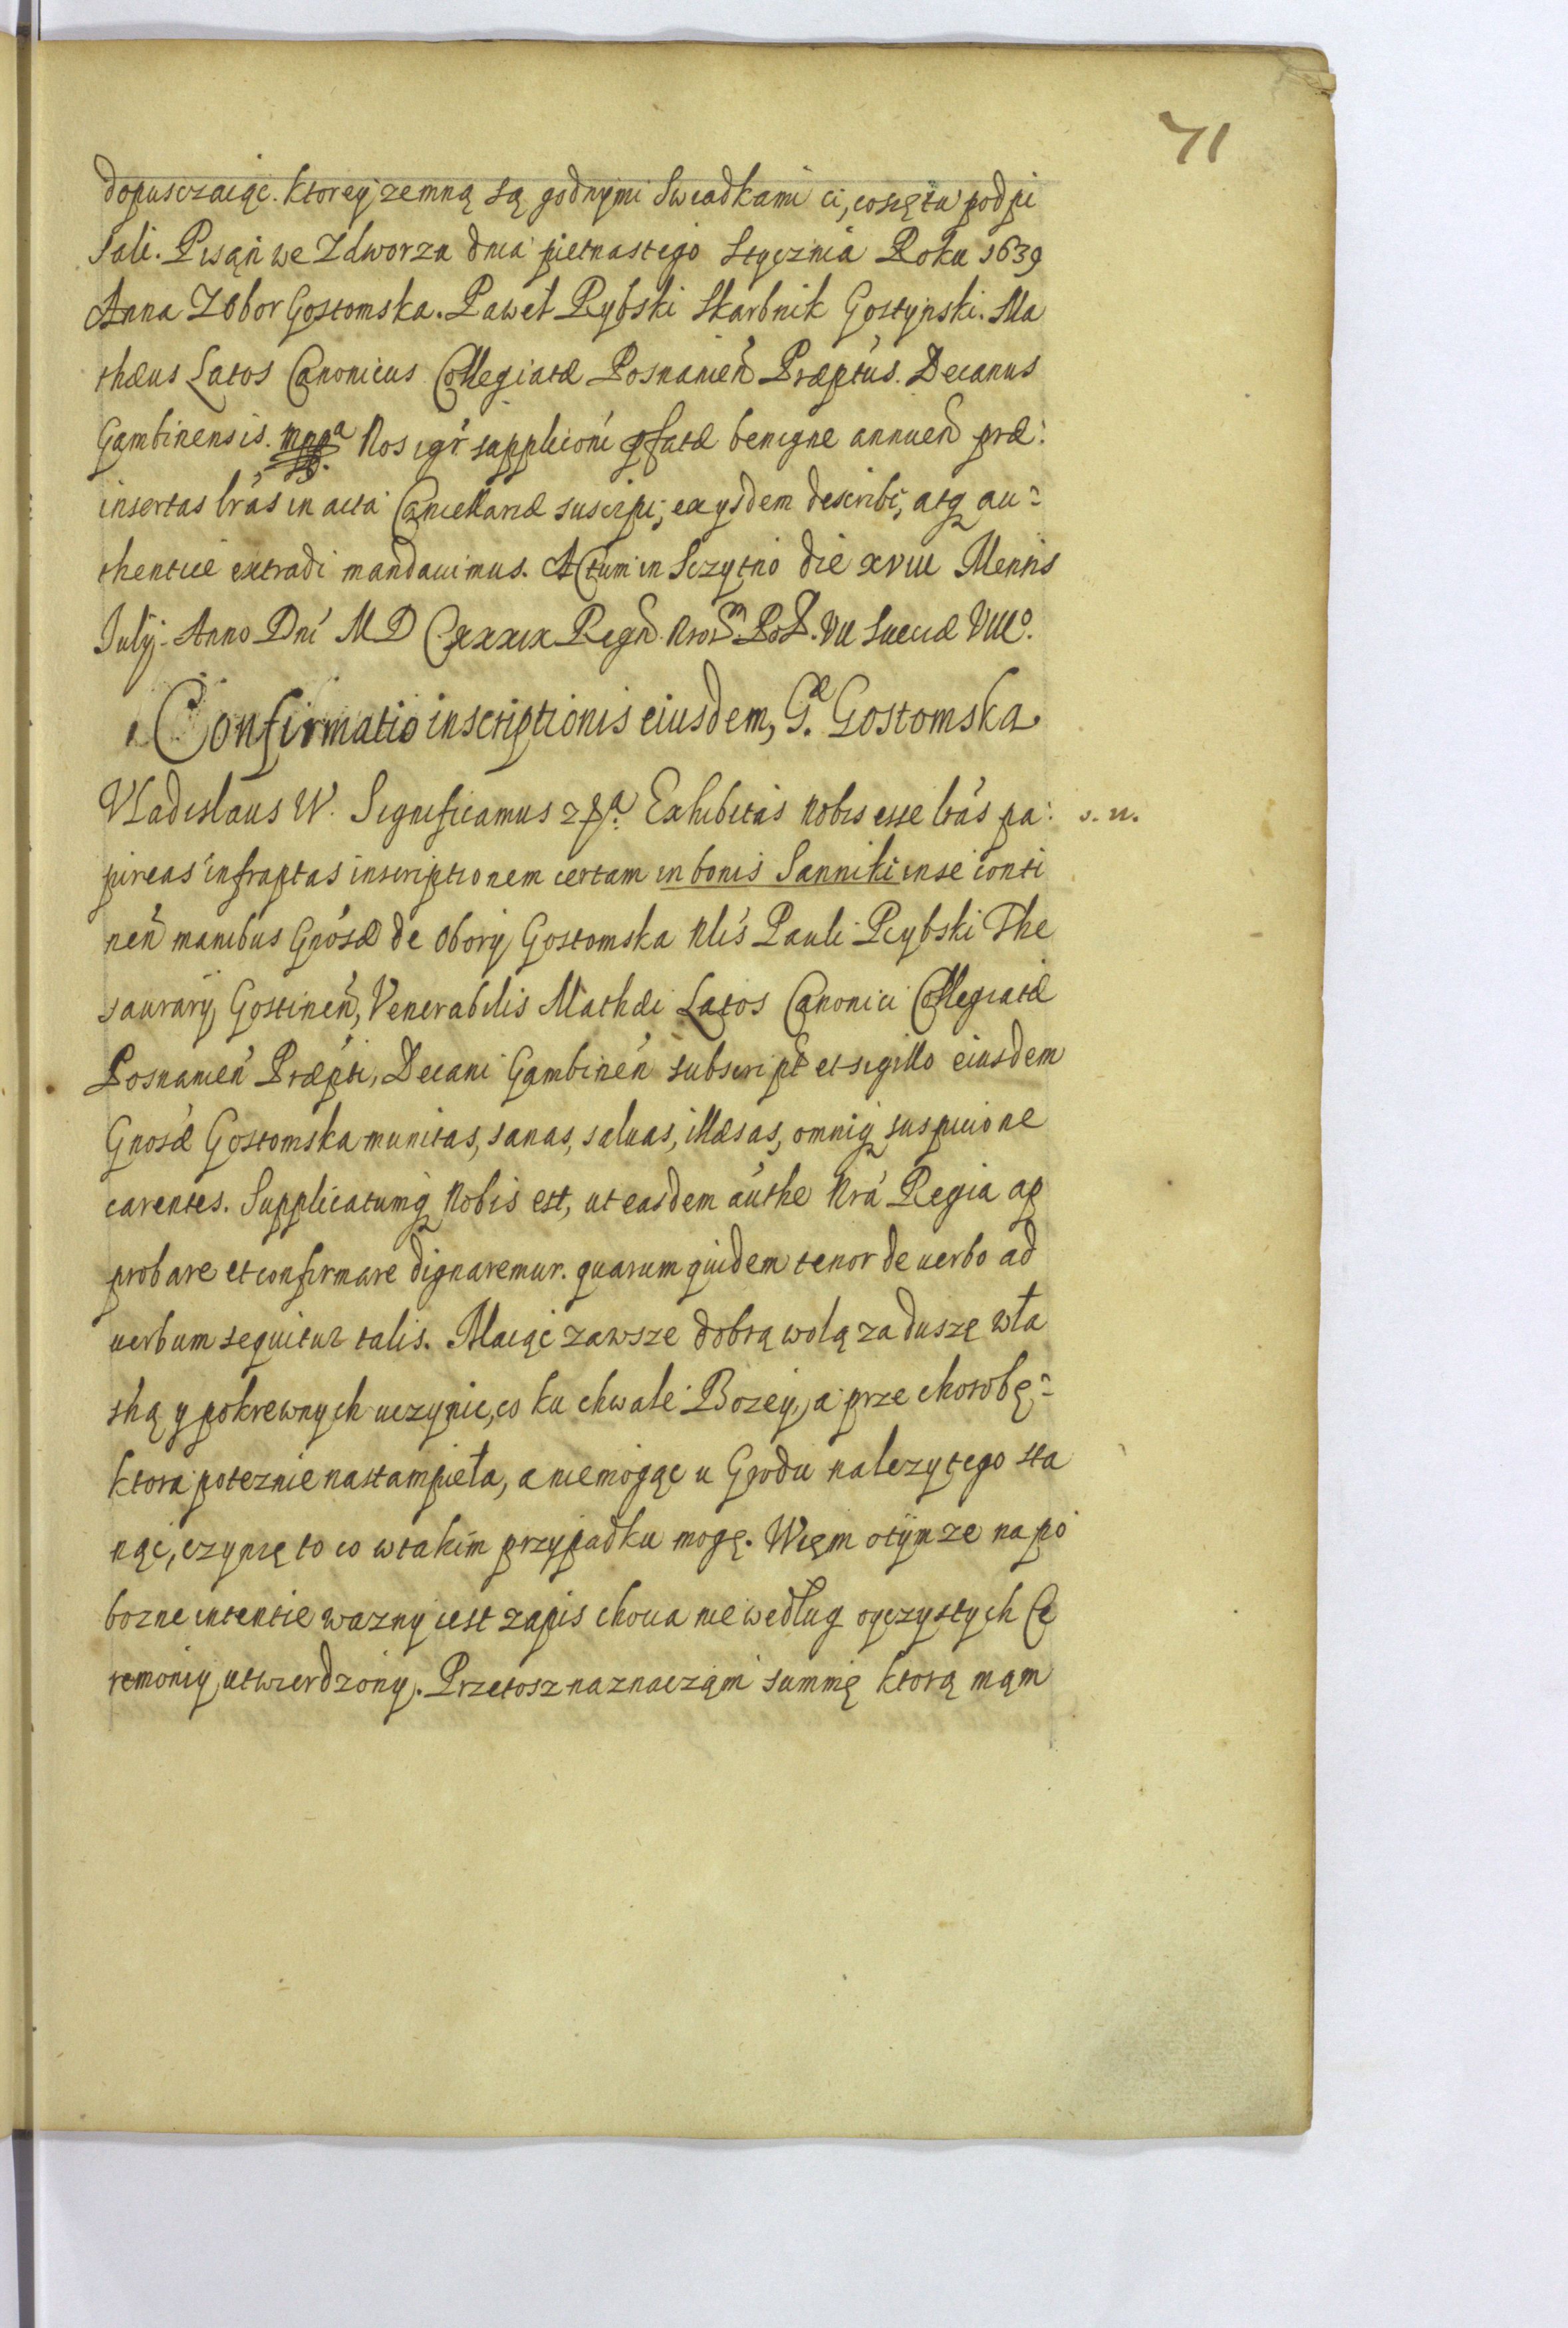 71
dopusczaiąc. ktorey zemną są godnymi Swiadkami ci, cosię tu podpi
sali. Pisąn we Zdworzu dnia pietnastego Stycznia Roku 1639
Anna Z Obor Gostomska. Paweł Rybski Skarbnik Gostynski. Ma
thæus Latos Canonicus Collegiatæ Posnanień Præptús. Decanus
Gambinensis. Nos igr̃ supplicioni pfatæ benigne annueñ præ:
insertas lrás in acta Cancellariæ suscipi, ex ysdem describi, atq au=
thentice extradi mandauimus. Actum in Sczytno die XVIII Mensis
July. Anno Dni M D CXXXIX Regñ. Nror̃ Pol. VII Sueciæ VIIIo.
Confirmatio inscriptionis eiusdem, G. Gostomska
Vladislaus IV. Significamus Exhibitas Nobis esse lrás pa: s. n.
pireas infraptas inscriptionem certam in bonis Sanniki in se conti
neñ manibus Gnósæ de Obory Gostomska Nlis Pauli Rybski The
saurary Gostineń, Venerabilis Mathæi Latos Canonici Collegiatæ
Posnanień Præpti, Decani Gambineń subscript et sigillo eiusdem
Gnosæ Gostomska munitas, sanas, saluas, illæsas, omniq suspicione
carentes. Supplicatumq Nobis est, ut easdem authe Nrá Regia ap
probare et confirmare dignaremur. quarum quidem tenor de uerbo ad
uerbum sequitur talis. Maiąc zawsze dobrą wolą za duszę wła
sną y pokrewnych uczynic, co ku chwale Bozey, a prze chorobę=
ktora poteznie nastampieła, a niemogąc u Grodu nalezytego sta
nąc, czynię to co wtakim przypadku mogę. Więm otym ze na po
bozne intentie wazny iest zapis choua nie wedlug oyczystych Ce
remoniy utwierdzony. Przetosz naznacząm summę ktorą mąm